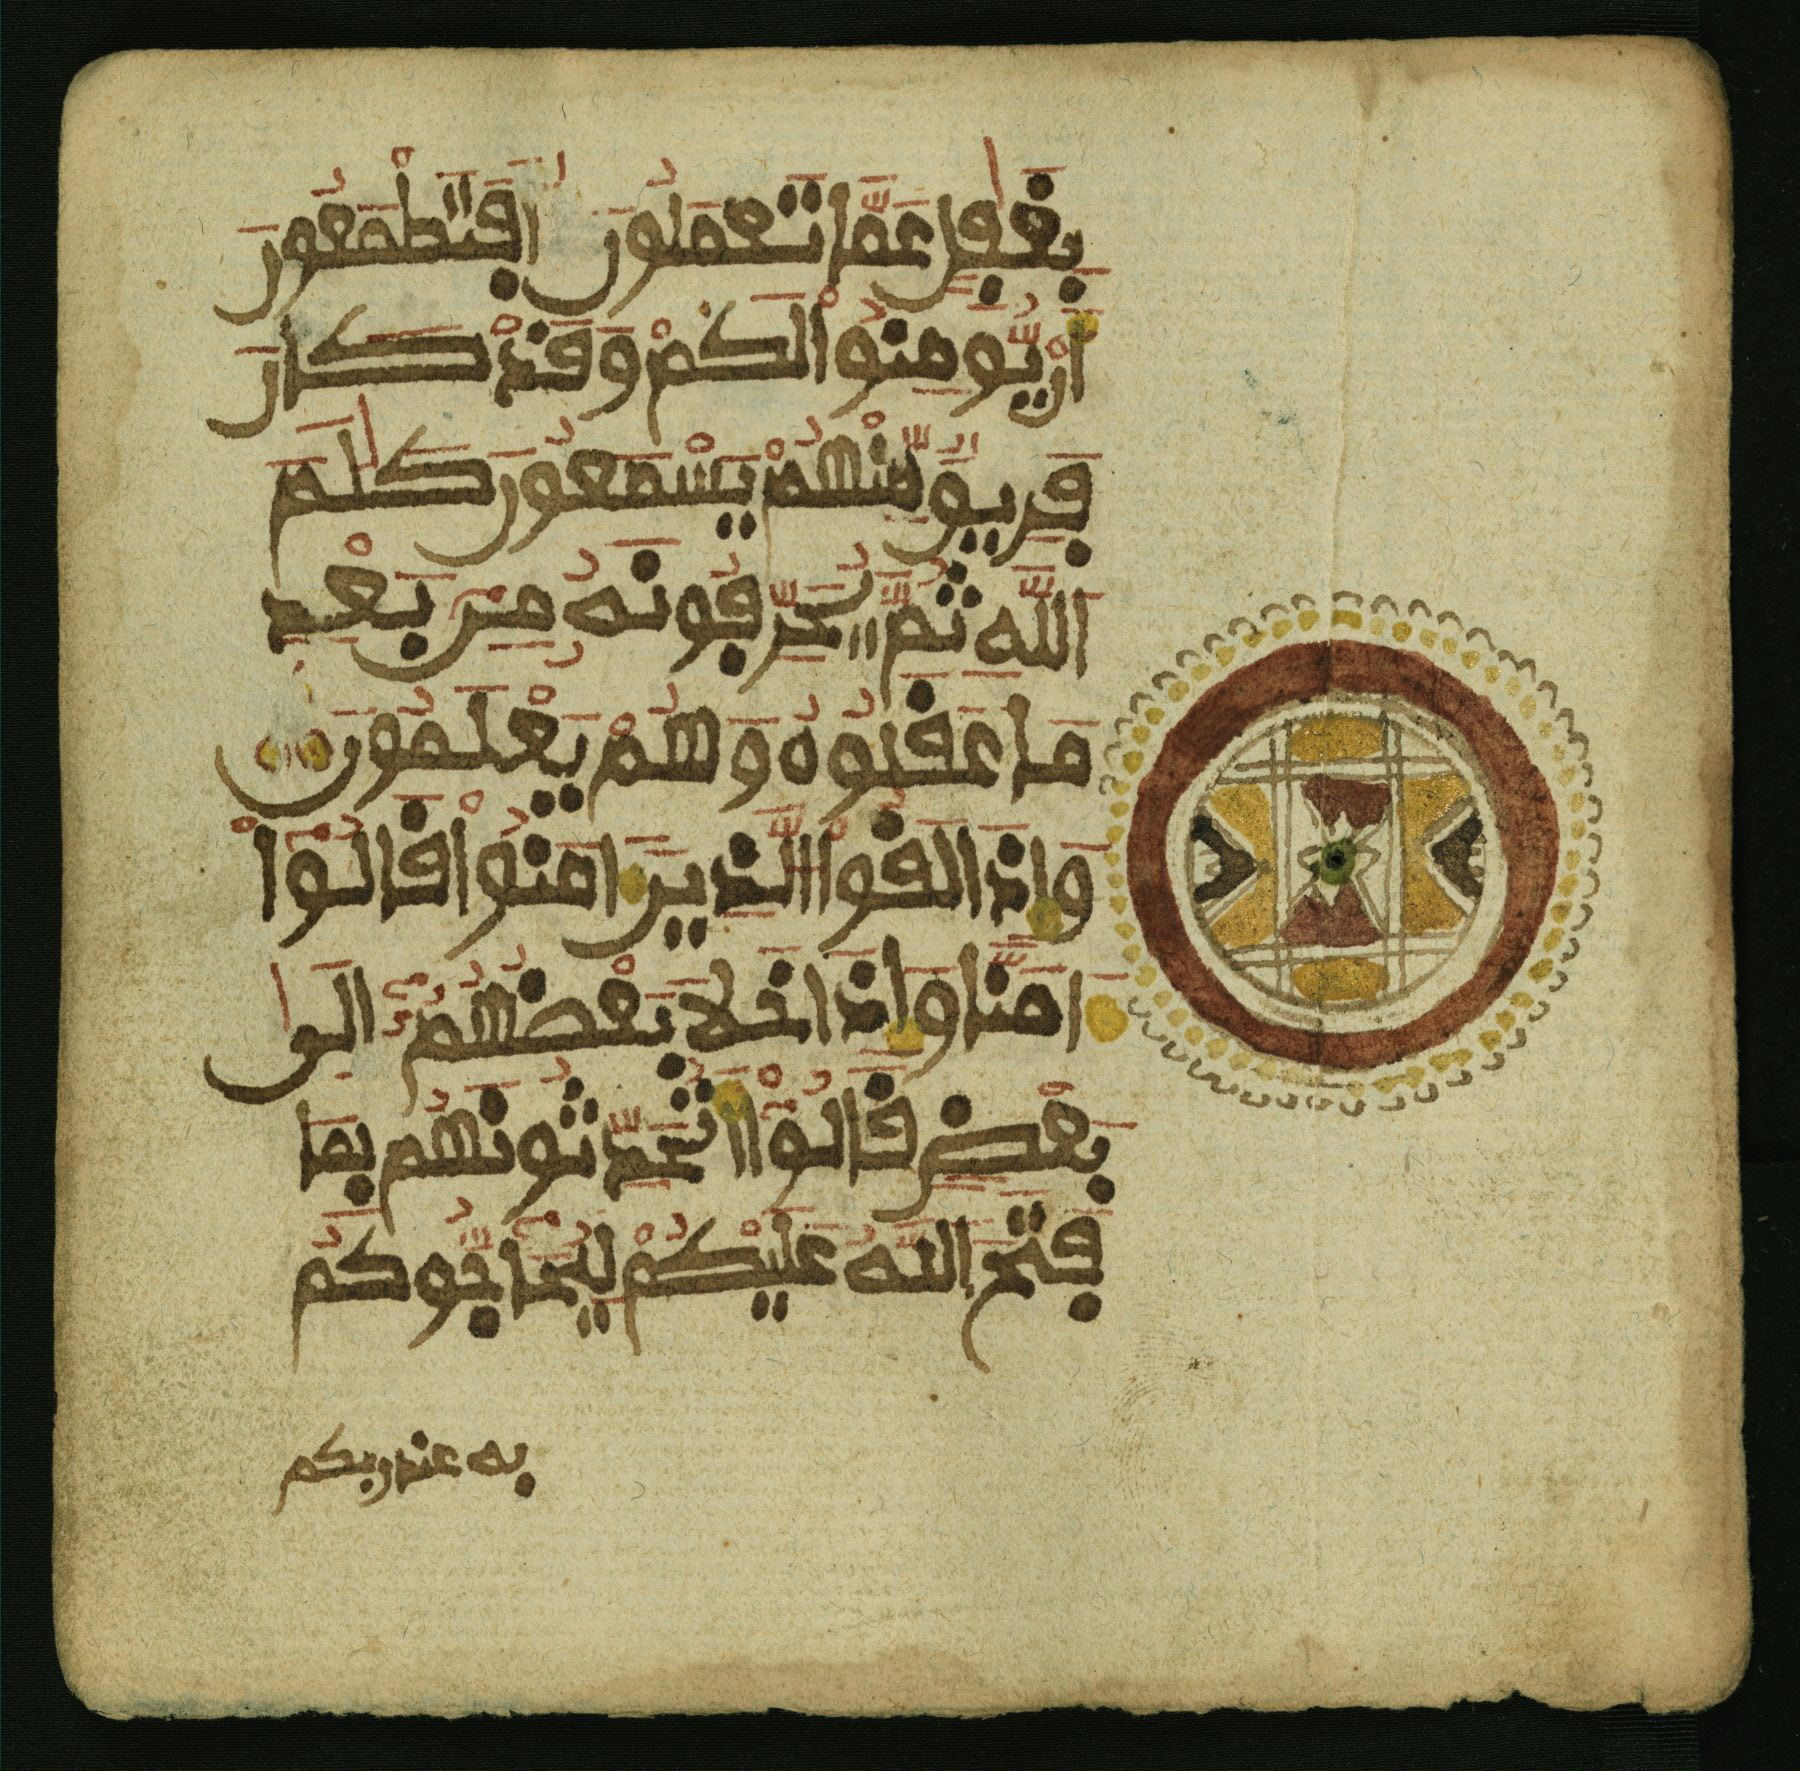 بِغَٰفِلٍ عَمَّا تَعْمَلُونَ أَفَتَطْمَعُونَ
أَنْ يُّومِنُواْ لَكُمْ وَقَدْ كَانَ
فَرِيقٌ مِّنْهُمْ يَسْمَعُونَ كَلَٰمَ
اَللَّهِ ثُمَّ يُحَرِّفُونَهُ مِنۢ بَعْدِ
مَا عَقَلُوهُ وَهُمْ يَعْلَمُونَ
وَإِذَا لَقُواْ اُلذِينَ ءَامَنُواْ قَالُوٓاْ
ءَامَنَّا وَإِذَا خَلَا بَعْضُهُمُۥٓ إِلَىٰ
بَعْضٍ قَالُوٓاْ أَتُحَدِّثُونَهُم بِمَا
فَتَحَ اَللَّهُ عَلَيْكُمْ لِيُحَآجُّوكُم
به عند ربكم